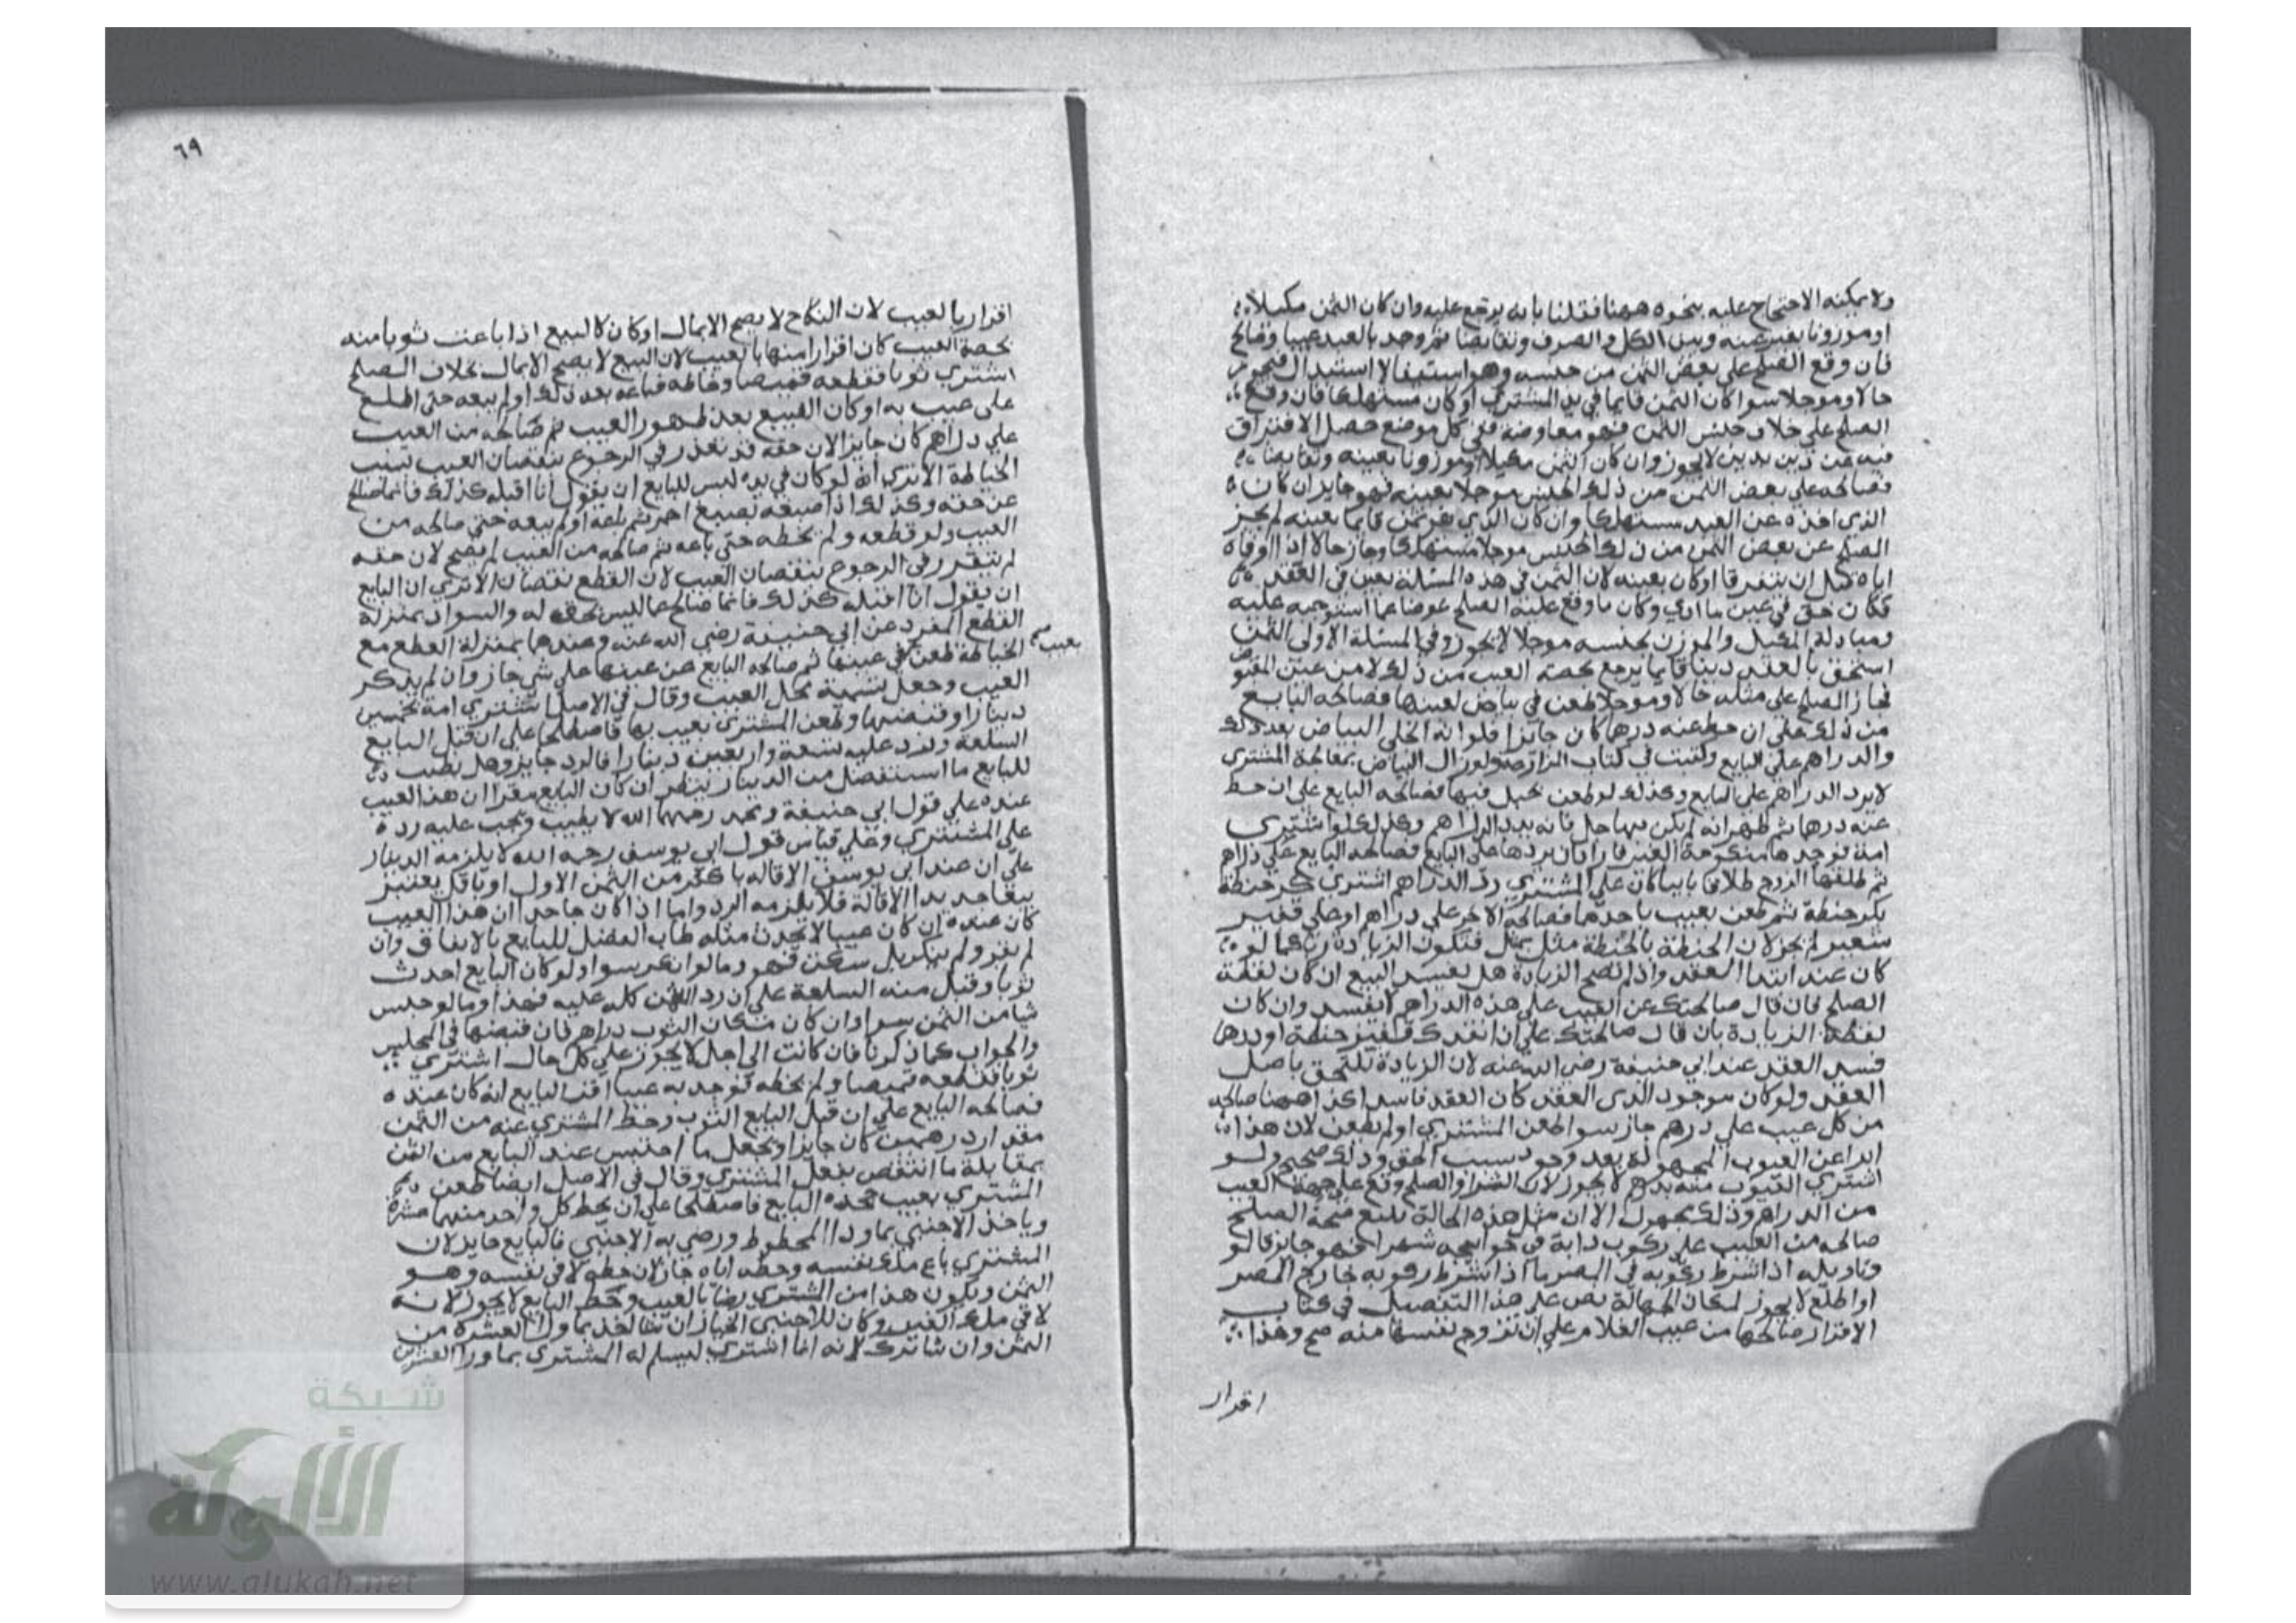 ولا يمكنه الاحتجاج عليه بنحوه ههنا فقلنا بانه يرجع عليه وان كان الثمن مكيلا
او موزونا بغير عينه وبين الكل والصرف وتقابضا ثم وجد بالعبد عيبا وصالح
فان وقع الصلح على بعض الثمن من جنسه وهو استيفا لا استبدال فيجوز
حالا وموجلا سوا كان الثمن قايما في يد المشتري او كان مستهلكا فان وقع
الصلح على خلاف جنس الثمن فهو معاوضة ففي كل موضع حصل الافتراق
فيه عن دين بدين لا يجوز وان كان الثمن مكيلا او موزونا بعينه وتقابضا
فصالحه على بعض الثمن من ذلك الجنس موجلا بعينه فهو جايز ان كان
الذي اخذه عن العبد مستهلكا وان كان الذي هو ثمن قايما بعينه لم يجز
الصلح عن بعض الثمن من ذلك الجنس موجلا مستهلكا وجاز حالا اذا اوفاه
اياه قبل ان يتفرقا او كان بعينه لان الثمن في هذه المسئلة تعين في العقد
فكان حقه في عين ما ادي وكان ما وقع عليه الصلح عوضا عما استوجبه عليه
ومبادلة المكيل والموزون بجنسه موجلا لا يجوز وفي المسئلة الاولى الثمن
استحق بالعقد دينا قايما يرجع بحصة العيب من ذلك لا من عين المقبوض
فجاز الصلح على مثله حالا وموجلا طعن في بياض بعينها فصالحه البايع
من ذلك على ان حط عنه درهما كان جايزا فلو انه انجلى البياض بعد ذلك
والدراهم على البايع وكتبت في كتاب المزارعة ولو زال البياض بمعالجة المشتري
لا يرد الدراهم على البايع وكذلك لو طعن بحبل فيها فصالحه البايع على ان حط
عنه درهما ثم ظهر انه لم يكن بها حبل فانه يرد الدراهم وكذلك لو اشترى
امة فوجدها منكوحة الغير فاراد ان يردها على البايع فصالحه البايع على دراهم
ثم طلقها الزوج طلاقا باينا كان على المشتري رد الدراهم اشترى كر حنطة
بكر حنطة ثم طعن بعيب باحدهما فصالحه الاخر على دراهم او على قفيز
شعير لم يجز لان الحنطة بالحنطة مثل بمثل فتكون الزيادة ربا كما لو
كان عند ابتدا العقد واذا لم تصح الزيادة هل يفسد البيع ان كان لفظة
الصلح فان قال صالحتك عن العيب على هذه الدراهم لا يفسد وان كان
لفظة الزيادة بان قال صالحتك على ان ازيدك قفيز حنطة او درهما
فسد العقد عند ابي حنيفة رضي الله عنه لان الزيادة تلتحق باصل
العقد ولو كان موجود الدى العقد كان العقد فاسدا كذا ههنا صالحه
من كل عيب على درهم جاز سوا طعن المشتري او لم يطعن لان هذا
ابرا عن العيوب المجهولة بعد وجود سبب الحق وذلك صحيح ولو
اشترى العيوب منه بدرهم لا يجوز لان الشرا والصلح وقع على جهة العيب
من الدراهم وذلك مجهول الا ان مثل هذه الجهالة لا تمنع صحة الصلح
صالحه من العيب على ركوب دابة في حوايجه شهرا فهو جايز قالو
وتاويله اذا شرط ركوبه في المصر اما اذا شرط ركوبه خارج المصر
او اطلع لا يجوز لمكان الجهالة نص على هذا التفصيل في كتاب
الاقرار صالحها من عيب الغلام على ان تزوج نفسها منه صح وهذا
اقرار
٦٩
اقرار بالعيب لان النكاح لا يصح الا بمال او كان كالبيع اذا باعت ثوبا منه
بحصة العيب كان اقرارا منها بالعيب لان البيع لا يصح الا بمال بخلاف الصلح
اشتري ثوبا فقطعه قميصا وخاطه فباعه بعد ذلك او لم يبعه حتى اطلع
على عيب به او كان البيع بعد ظهور العيب ثم صالحه من العيب
على دراهم كان جايزا لان حقه قد تعذر في الرجوع بنقصان العيب بسبب
الخياطة الا ترى انه لو كان في يده ليس للبايع ان يقول انا اقبله كذلك فانما صالح
عن حقه وكذلك اذا صبغه بصبغ احمر ثم باعه او لم يبعه حتى صالحه من
العيب ولو قطعه ولم يخطه حتى باعه ثم صالحه من العيب لم يصح لان حقه
لم يتقرر في الرجوع بنقصان العيب لان القطع نقصان الا ترى ان البايع
ان يقول انا اقبله كذلك فانما صالح عما ليس بحق له والسواد بمنزلة
القطع المفرد عن ابي حنيفة رضي الله عنه وعندهما بمنزلة القطع مع
الخياطة طعن بعيب في عينها ثم صالحه البايع عن عينها على شي جاز وان لم يذكر
العيب وجعل تسمية محل العيب وقال في الاصل اشتري امة بخمسين
دينارا وقبضها وطعن المشتري بعيب بها فاصطلحا على ان قبل البايع
السلعة ورد عليه تسعة واربعين دينارا فالرد جايز وهل يطيب
للبايع ما استفضل من الدينار ينظر ان كان البايع مقرا ان هذا العيب
عنده على قول ابي حنيفة ومحمد رحمهما الله لا يطيب ويجب عليه رده
على المشتري وعلى قياس قول ابي يوسف رحمه الله لا يلزمه الدينار
على ان عند ابي يوسف الاقالة باكثر من الثمن الاول او باقل يعتبر
بيعا جديدا الاقالة فلا يلزمه الرد واما اذا كان جاحدا ان هذا العيب
كان عنده ان كان عيبا لا يحدث مثله طاب الفضل للبايع بالاتفاق وان
لم يقر ولم ينكر بل سكت فهو وما لو انكر سوا ولو كان البايع احدث
ثوبا وقبل منه السلعة على ان رد الثمن كله عليه فهذا وما لو حبس
شيا من الثمن سوا وان كان مكان الثوب دراهم فان قبضها في المجلس
والجواب كما ذكرنا فان كانت الى اجل لا يجوز على كل حال اشتري
ثوبا فقطعه قميصا ولم يخطه فوجد به عيبا اقر البايع انه كان عنده
فصالحه البايع على ان قبل البايع الثوب وحط المشتري عنه من الثمن
مقدار درهمين كان جايزا ويجعل ما احتبس عند البايع من الثمن
بمقابلة ما انتقص بفعل المشتري وقال في الاصل ايضا طعن
المشتري بعيب جحده البايع فاصطلحا على ان يحط كل واحد منهما عشرة
وياخذ الاجنبي بما ورا المحطوط ورضي به الاجنبي فالبايع جايز لان
المشتري باع ملك نفسه وحطه اياه جاز لان حطه لاقى نفسه وهو
الثمن ويكون هذا من المشتري رضا بالعيب وحط البايع لا يجوز لانه
لاقي ملك الغير وكان للاجنبي الخيار ان شا اخذ بما ورا العشرة من
الثمن وان شا ترك لانه انما اشتري ليسلم له المشتري بما ورا العشرين
شبكة
الألوكة
www.alukah.net